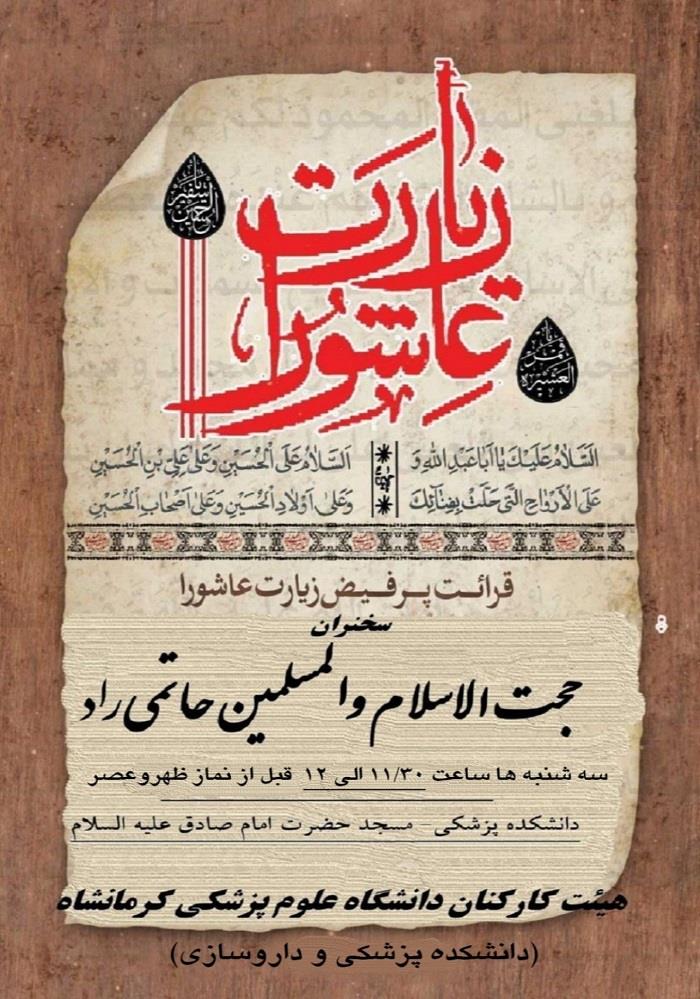 زیارت
عاشورا
یا سفیر الحسین
یا قمر العشیره
اَلسَّلامُ عَلَیْکَ یٰا اَباعَبْدِ اللهِ وَ
عَلَی الْاَرْواحِ الَّتی حَلَّتْ بِفِنٰائِکَ
اَلسَّلامُ عَلَی الْحُسَیْنِ وَ عَلی عَلِیِّ بْنِ الْحُسَیْنِ
وَ عَلی اَوْلادِ الْحُسَیْنِ وَ عَلی اَصْحابِ الْحُسَیْنِ
قرائت پرفیض زیارت عاشورا
سخنران
حجت الاسلام والمسلمین حاتمی راد
سه شنبه ها ساعت ۱۱/۳۰ الی ۱۲ قبل از نماز ظهروعصر
دانشکده پزشکی- مسجد حضرت امام صادق علیه السلام
هیئت کارکنان دانشگاه علوم پزشکی کرمانشاه
(دانشکده پزشکی و داروسازی)